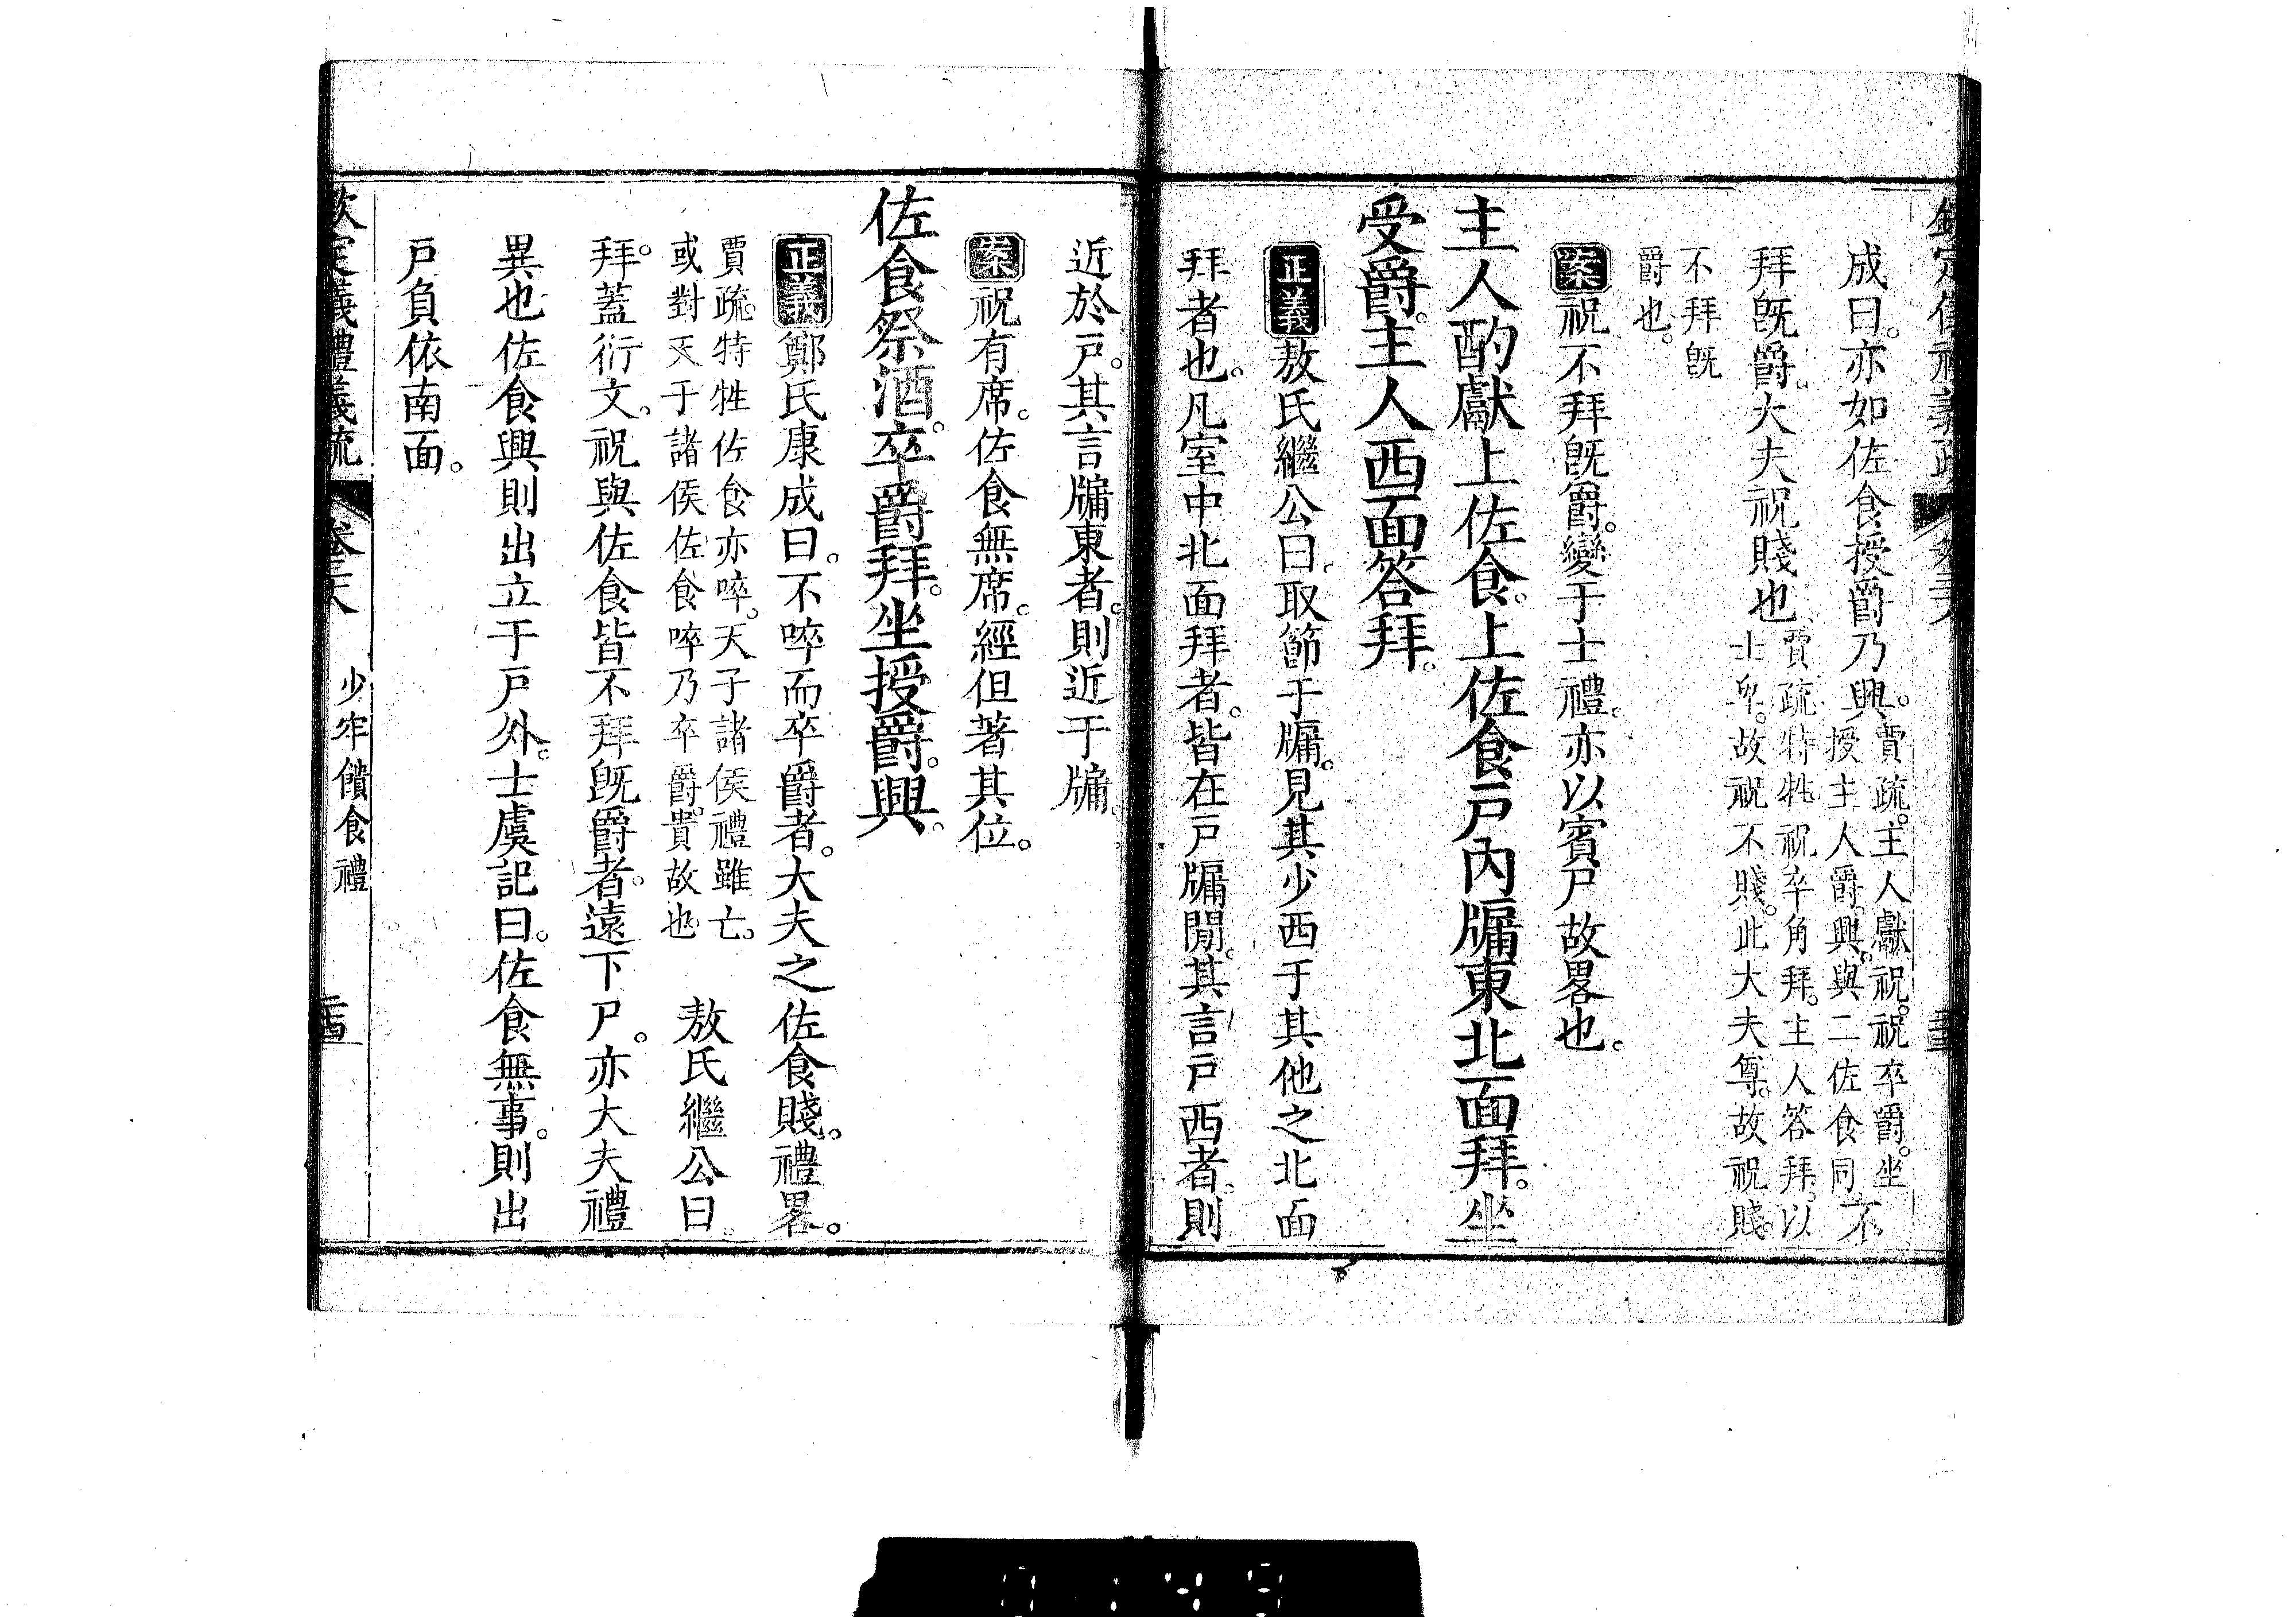 成曰。亦如佐食授爵乃興。賈疏。主人獻祝。祝卒爵。坐授主人爵。興。與二佐食同。不
拜旣爵。大夫祝賤也賈疏特牲。祝卒角拜。主人答拜。以士卑。故祝不賤。此大夫尊。故祝賤。
不拜旣爵也。
案祝不拜旣爵。變于士禮。亦以賓尸故畧也。
主人酌獻上佐食。上佐食戸內牖東北面拜。坐
受爵。主人西面答拜。
正義敖氏繼公曰。取節于牖。見其少西于其他之北面
拜者也。凡室中北面拜者。皆在戸牖閒。其言戸西者。則
近於戸。其言牖東者。則近于牖。
案祝有席。佐食無席。經但著其位。
佐食祭酒。卒爵拜。坐授爵。興。
正義鄭氏康成曰。不啐而卒爵者。大夫之佐食賤。禮畧。
賈疏。特牲佐食亦啐。天子諸侯禮雖亡。或對天子諸侯佐食啐乃卒爵。貴故也 敖氏繼公曰。
拜。蓋衍文。祝與佐食皆不拜旣爵者。遠下尸。亦大夫禮
異也佐食興則出立于戸外。士虞記曰。佐食無事。則出
戸負依南面。
欽定義禮義疏 卷三十八 少牢饋食禮 二十四